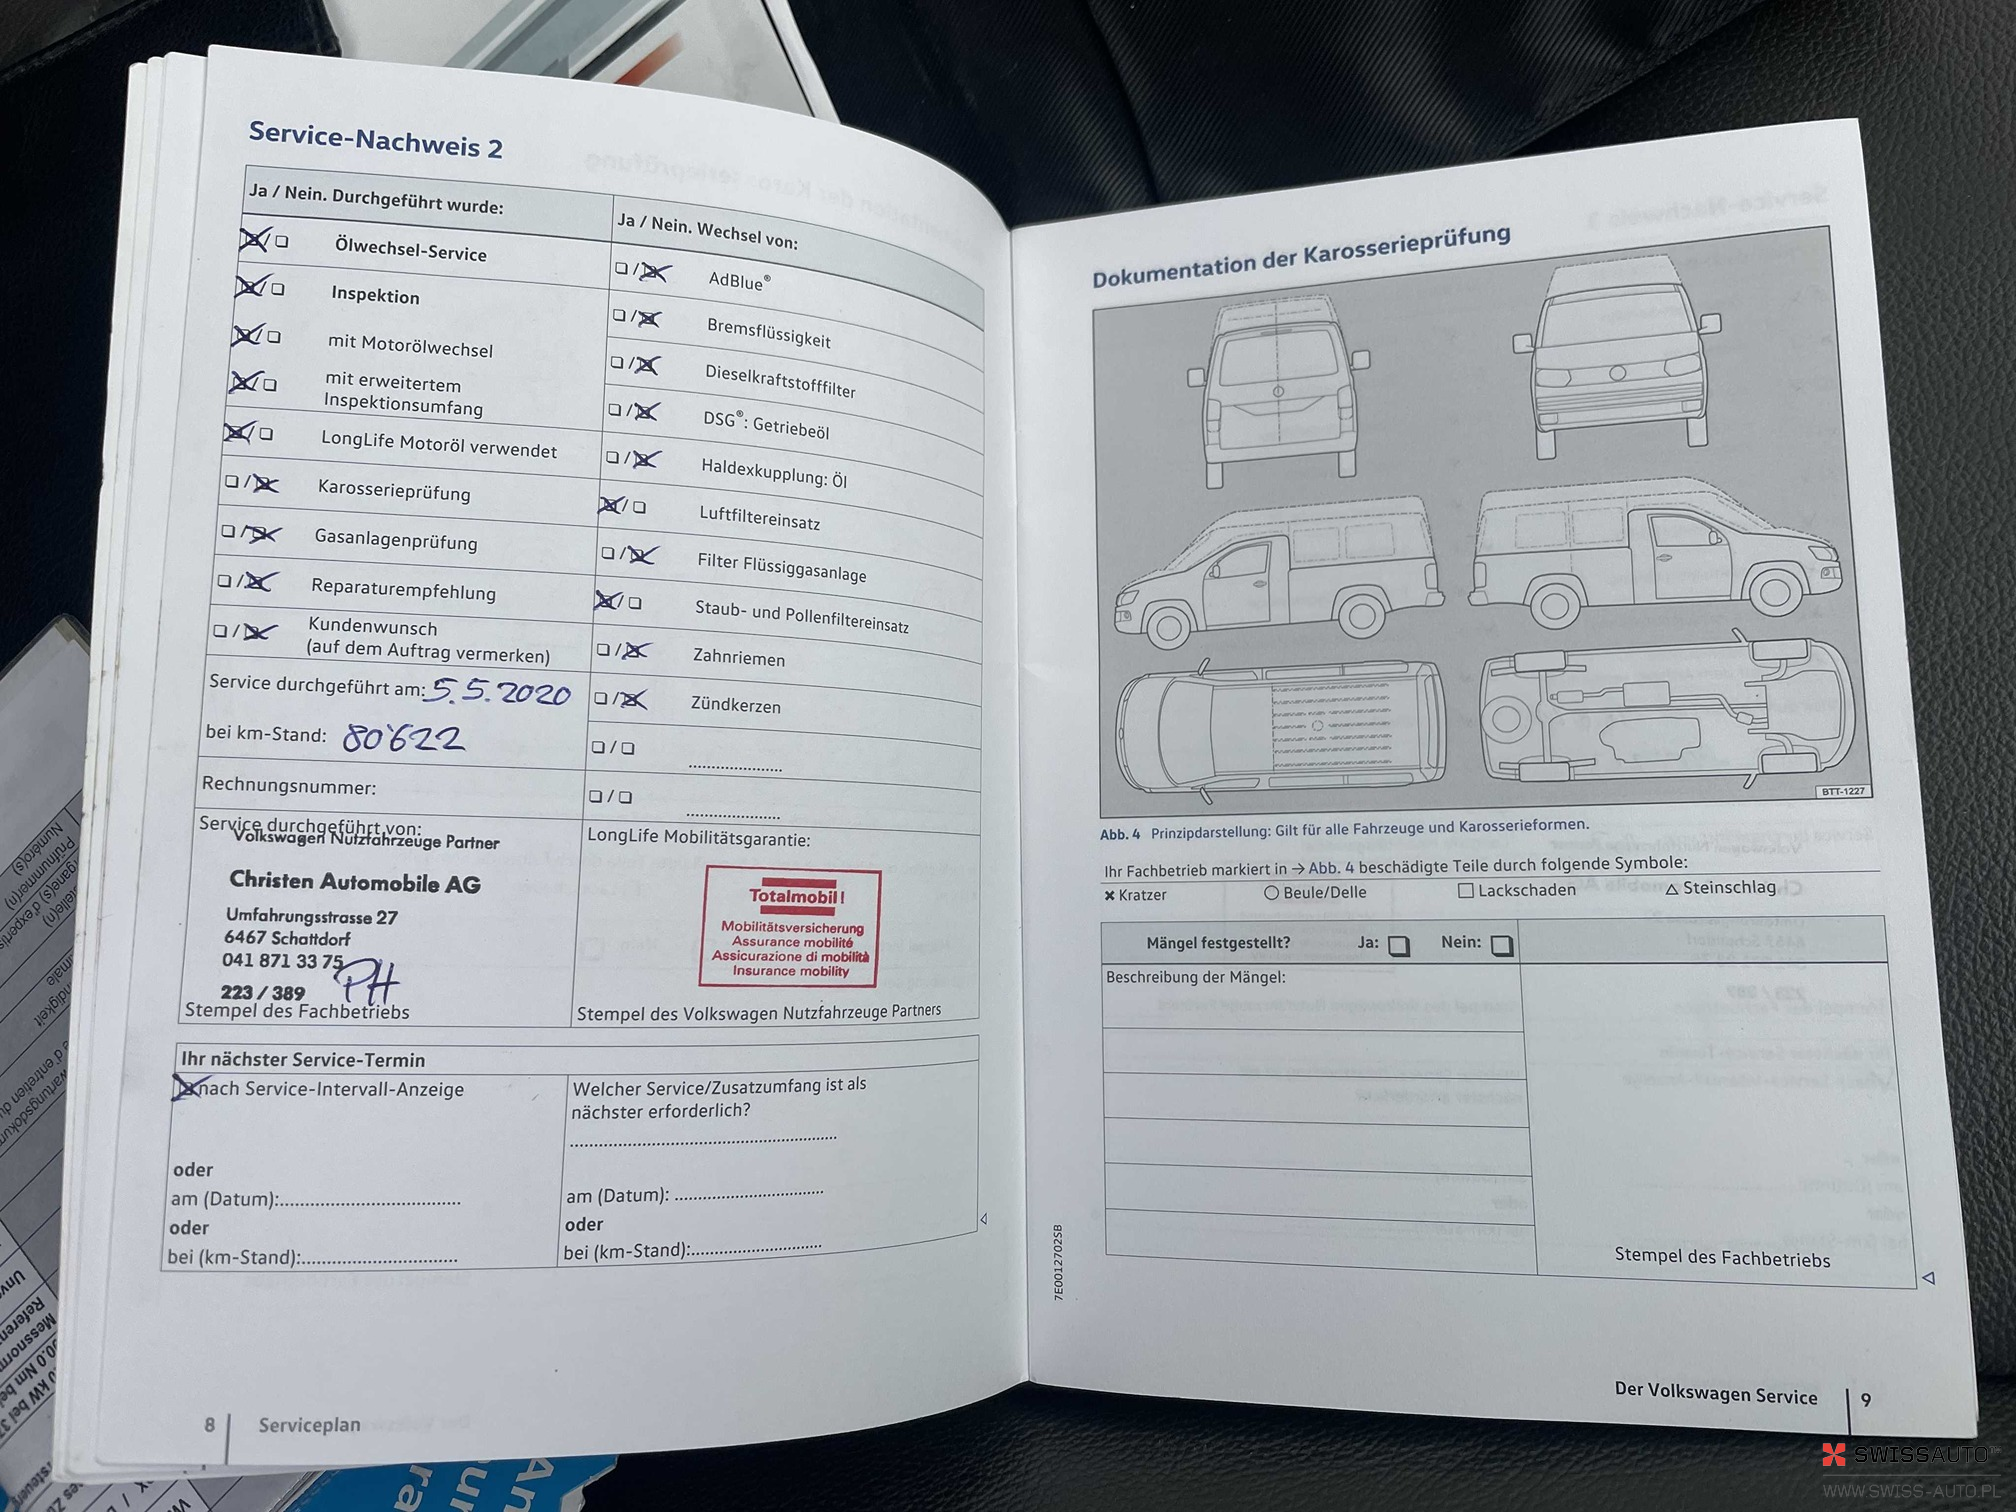 Service-Nachweis 2
Ja / Nein. Durchgeführt wurde:
Ölwechsel-Service
Inspektion
mit Motorölwechsel
mit erweitertem
Inspektionsumfang
LongLife Motoröl verwendet
Karosserieprüfung
Gasanlagenprüfung
Reparaturempfehlung
Kundenwunsch
(auf dem Auftrag vermerken)
Service durchgeführt am: 5.5.2020
bei km-Stand: 80'622
Rechnungsnummer:
Service durchgeführt von:
Volkswagen Nutzfahrzeuge Partner
Christen Automobile AG
Umfahrungsstrasse 27
6467 Schattdorf
041 871 33 75
PH
223 / 389
Stempel des Fachbetriebs
Ja / Nein. Wechsel von:
AdBlue®
Bremsflüssigkeit
Dieselkraftstofffilter
DSG®: Getriebeöl
Haldexkupplung: Öl
Luftfiltereinsatz
Filter Flüssiggasanlage
Staub- und Pollenfiltereinsatz
Zahnriemen
Zündkerzen
LongLife Mobilitätsgarantie:
Totalmobil!
Mobilitätsversicherung
Assurance mobilité
Assicurazione di mobilità
Insurance mobility
Stempel des Volkswagen Nutzfahrzeuge Partners
Ihr nächster Service-Termin
nach Service-Intervall-Anzeige
oder
am (Datum):
oder
bei (km-Stand):
Welcher Service/Zusatzumfang ist als
nächster erforderlich?
am (Datum):
oder
bei (km-Stand):
8 Serviceplan
Dokumentation der Karosserieprüfung
BTT-1227
Abb. 4 Prinzipdarstellung: Gilt für alle Fahrzeuge und Karosserieformen.
Ihr Fachbetrieb markiert in → Abb. 4 beschädigte Teile durch folgende Symbole:
✖ Kratzer ○ Beule/Delle □ Lackschaden △ Steinschlag
Mängel festgestellt? Ja: Nein:
Beschreibung der Mängel:
Stempel des Fachbetriebs
7E0012702SB
Der Volkswagen Service 9
SWISSAUTO
WWW.SWISS-AUTO.PL